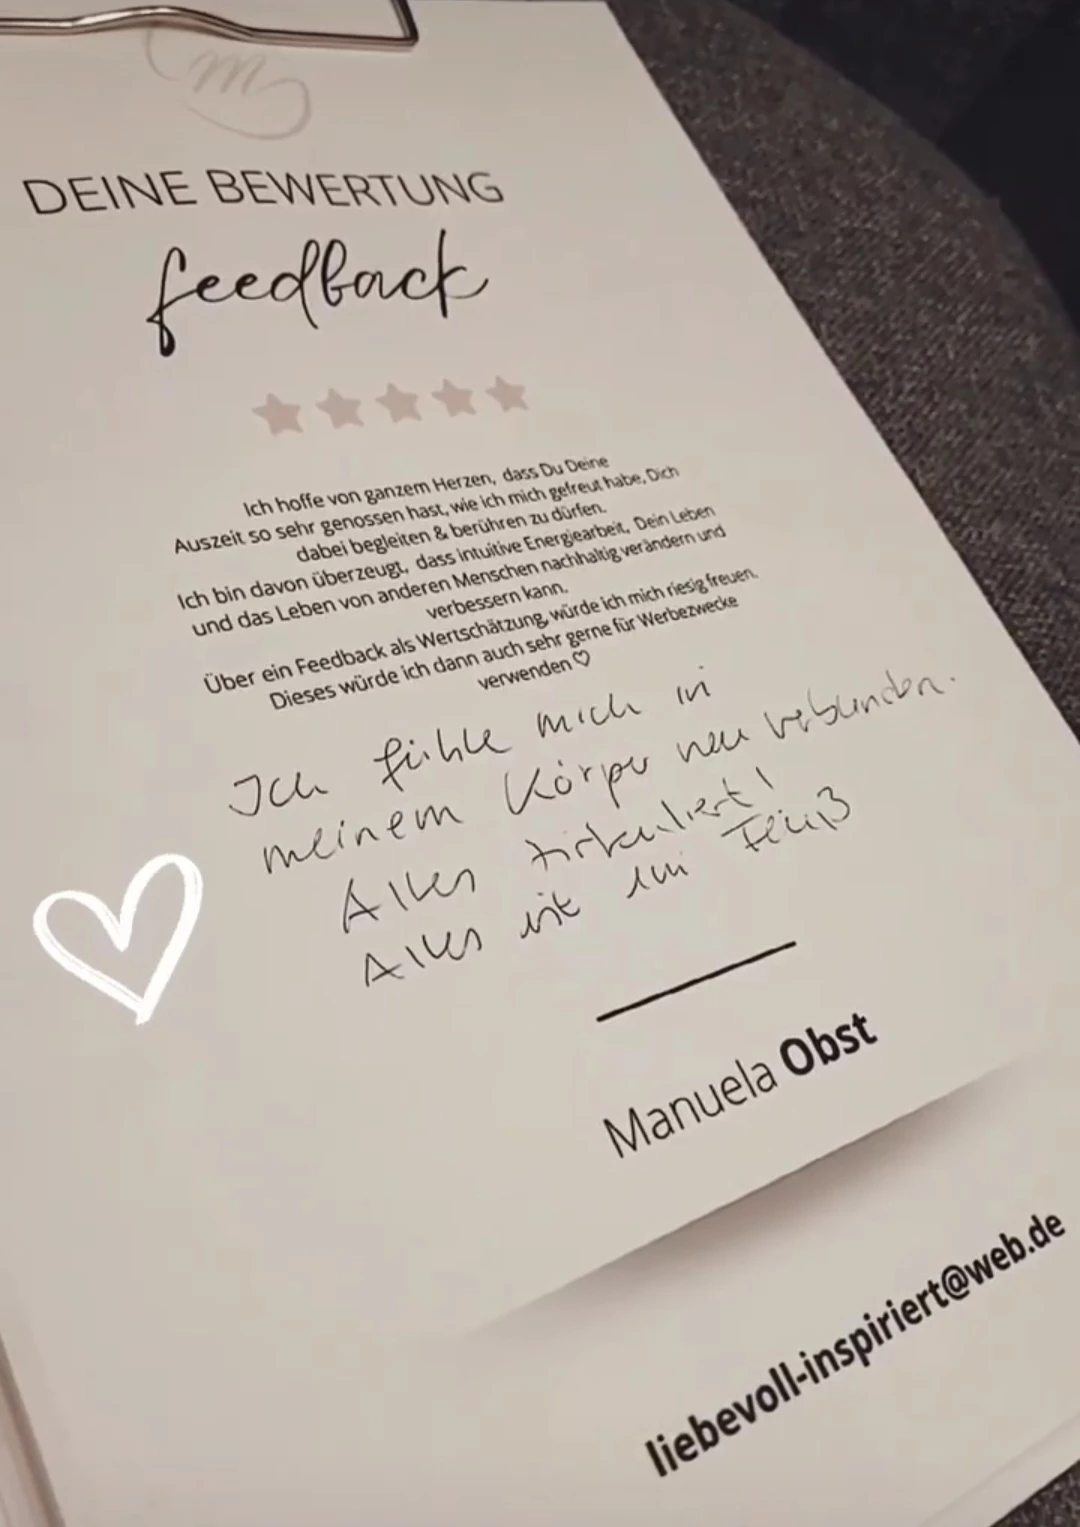 m
DEINE BEWERTUNG
feedback
Ich hoffe von ganzem Herzen, dass Du Deine
Auszeit so sehr genossen hast, wie ich mich gefreut habe, Dich
dabei begleiten & berühren zu dürfen.
Ich bin davon überzeugt, dass intuitive Energiearbeit, Dein Leben
und das Leben von anderen Menschen nachhaltig verändern und
verbessern kann.
Über ein Feedback als Wertschätzung, würde ich mich riesig freuen.
Dieses würde ich dann auch sehr gerne für Werbezwecke
verwenden ♡
Ich fühle mich in
meinem Körper neu verbunden.
Alles zirkuliert!
Alles ist im
Manuela Obst
liebevoll-inspiriert@web.de